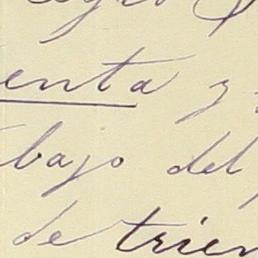 enta y
bajo del
de trien